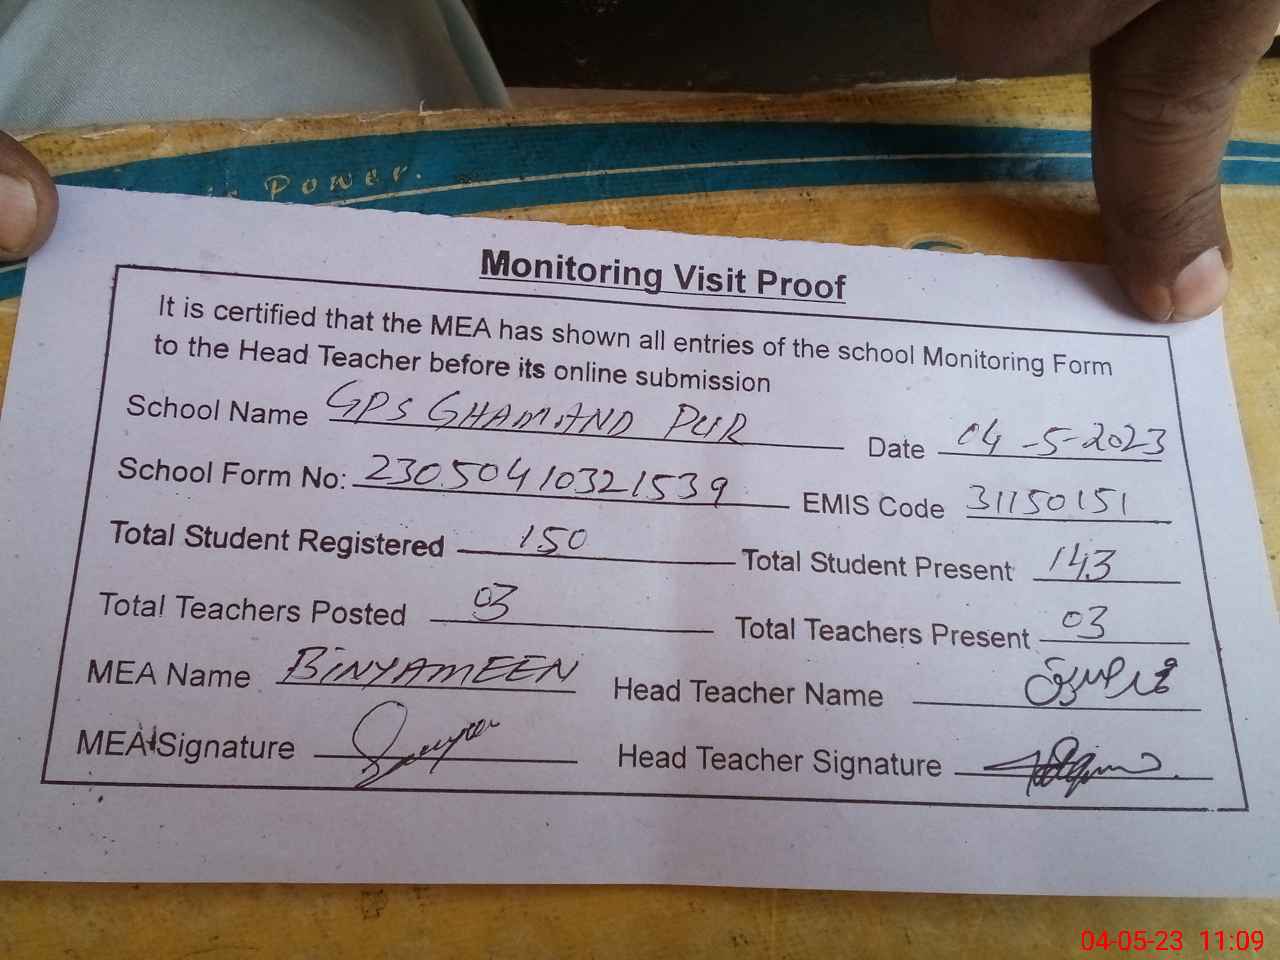 is Power.
Monitoring Visit Proof
It is certified that the MEA has shown all entries of the school Monitoring Form
to the Head Teacher before its online submission
School Name GPS GHAMAND PUR Date 04-5-2023
School Form No: 23050410321539 EMIS Code 31150151
Total Student Registered 150 Total Student Present 143
Total Teachers Posted 03 Total Teachers Present 03
MEA Name BINYAMEEN Head Teacher Name
MEA Signature Head Teacher Signature
04-05-23 11:09